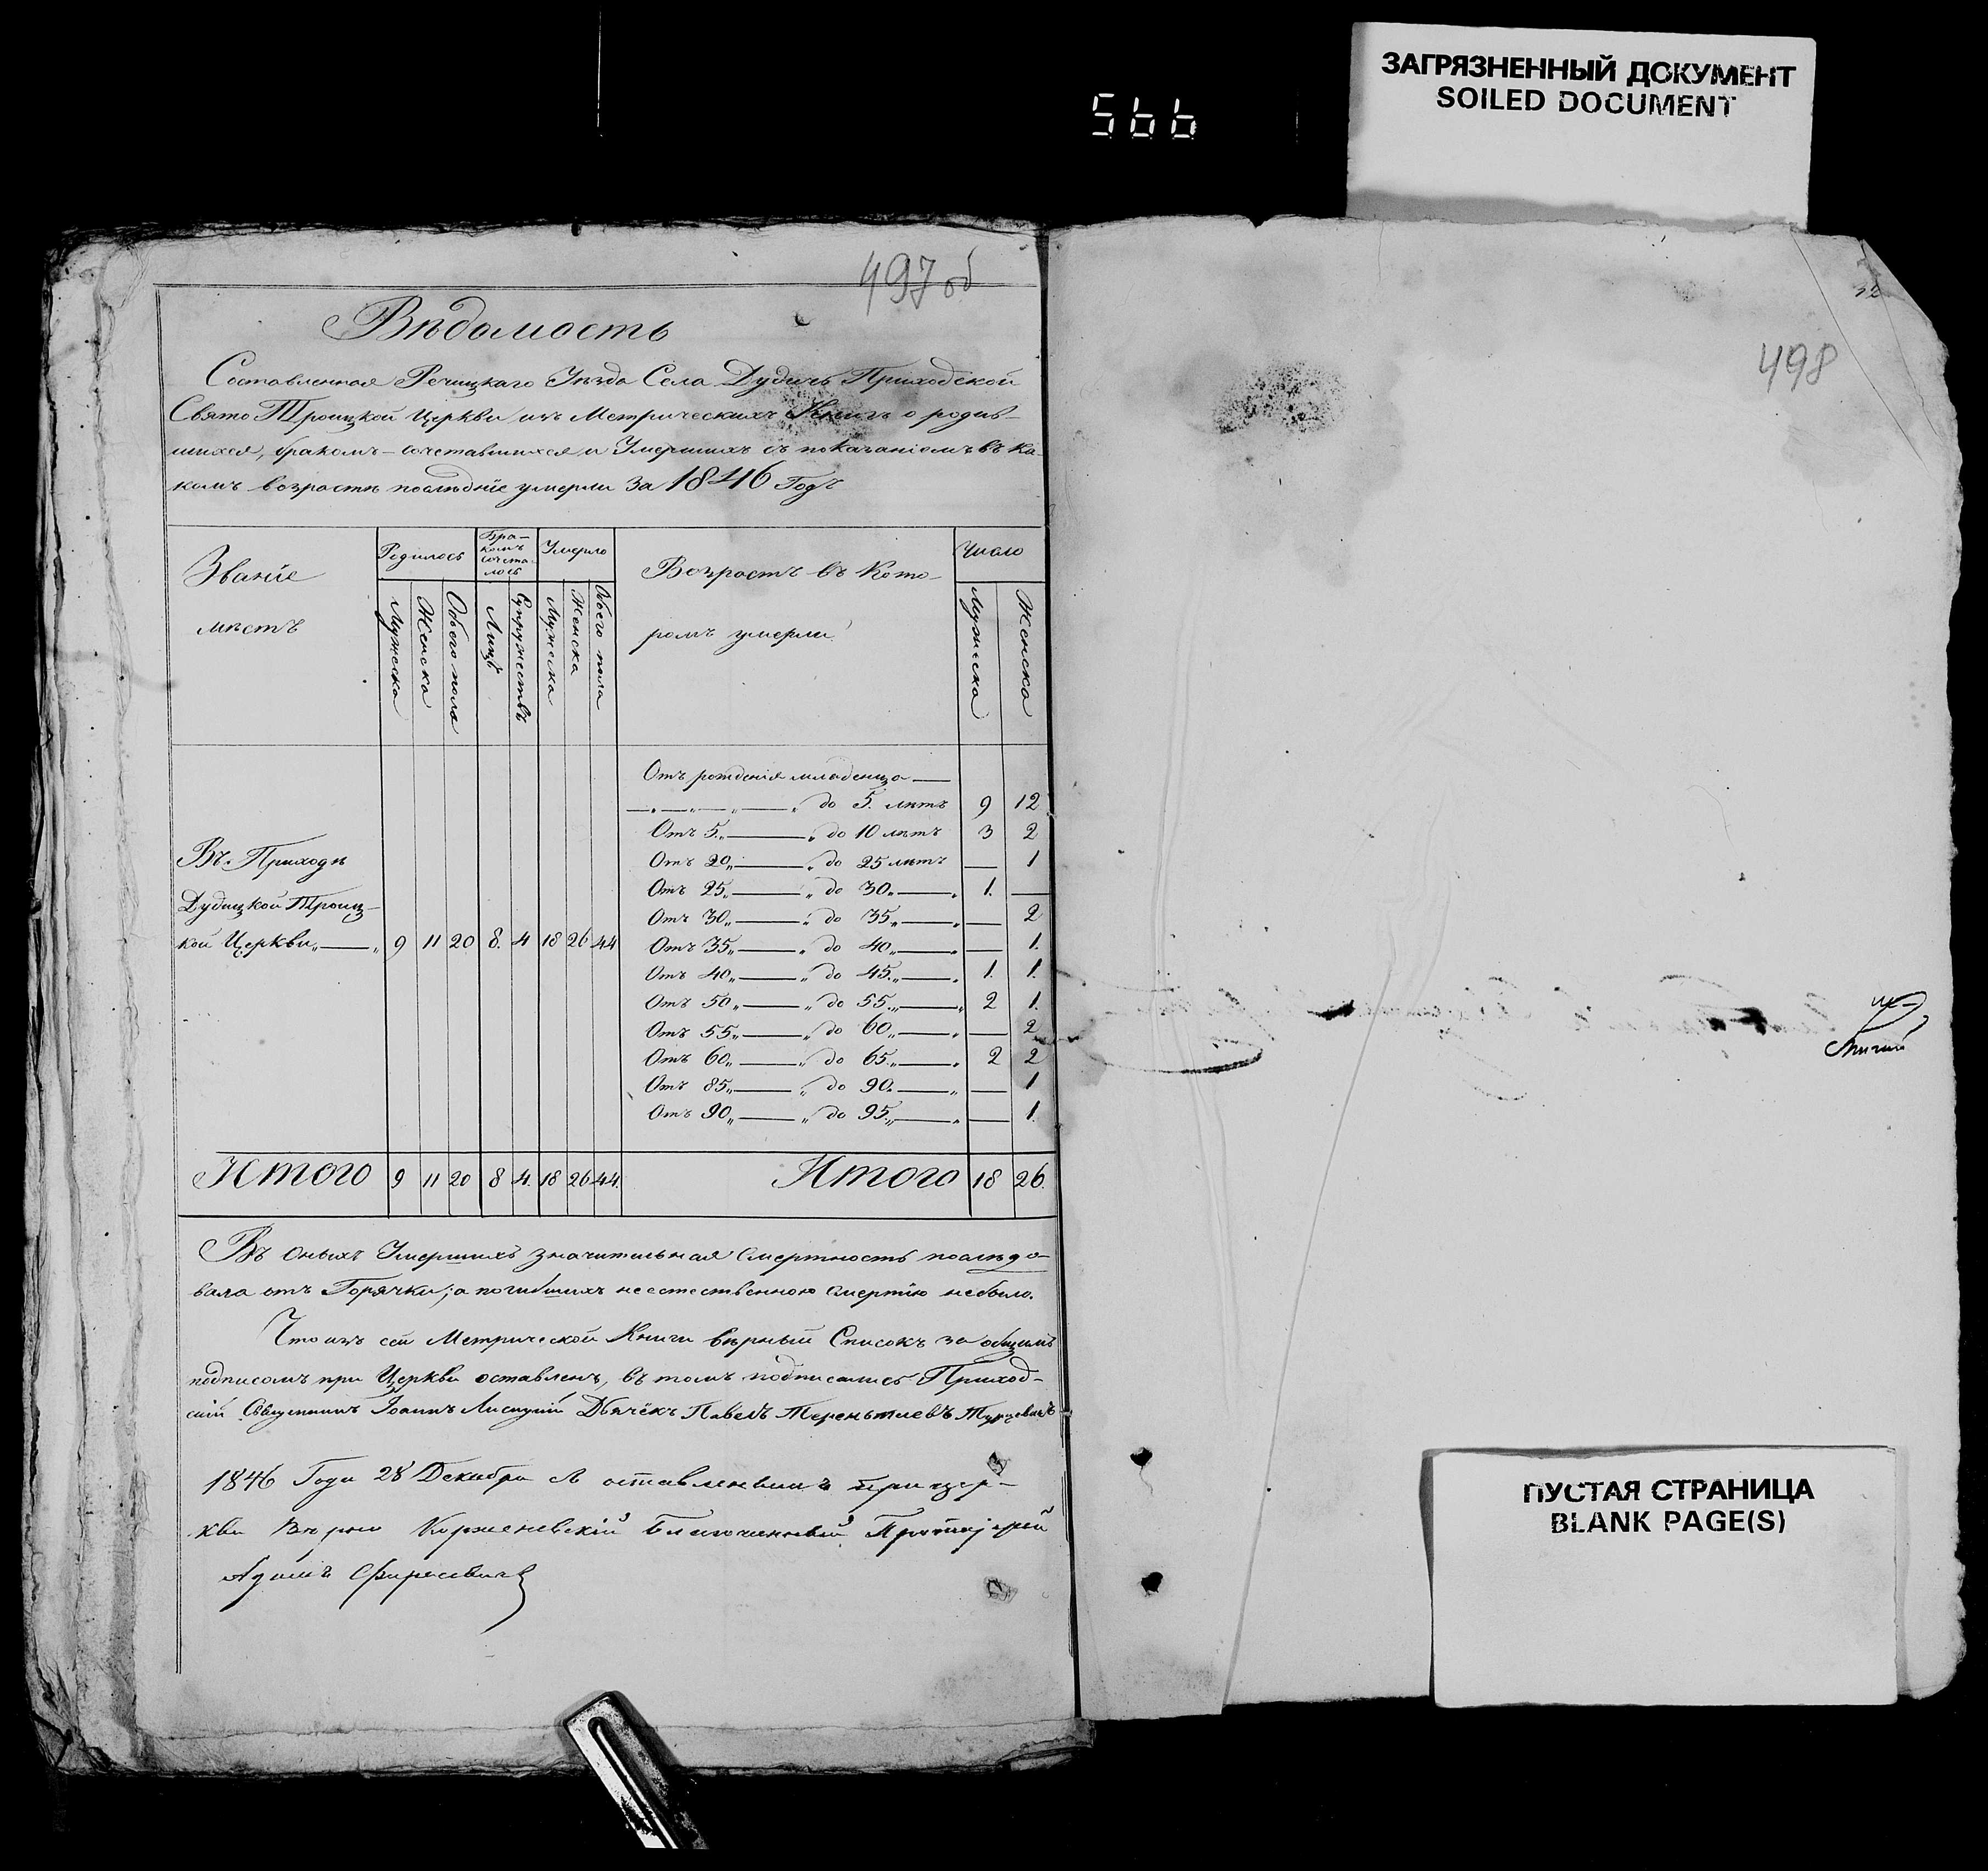 ЗАГРЯЗНЕННЫЙ ДОКУМЕНТ
SOILED DOCUMENT
566
497 об
Вѣдомость
Составленная Речицкаго Уѣзда Села Дудичъ Приходской
Свято Троицкой Церкви изъ Метрическихъ Книгъ о родив-
шихся, бракомъ-сочетавшихся и Умершихъ съ показаніемъ въ ка-
комъ возрастѣ послѣднїе умерли за 1846 Годъ
Званїе мѣстъ
Родилось
Бра-комъ сочета-лось
Умерло
Возрастъ въ Кото-
ромъ умерли
Число
Мужеска Женска Обоего пола Лицъ Супружествъ Мужеска Женска Обоего пола Мужеска Женска
Отъ рожденія младенца —
до 5. лѣтъ 9 12
Отъ 5. — до 10 лѣтъ 3 2
Отъ 20 — до 25 лѣтъ — 1
Отъ 25. — до 30. — 1. —
Отъ 30 — до 35 — — 2
Отъ 35 — до 40 — — 1.
Отъ 40 — до 45. — 1. 1.
Отъ 50 — до 55 — 2 1.
Отъ 55 — до 60 — — 2
Отъ 60 — до 65 — 2 2
Отъ 85 — до 90 — — 1
Отъ 90 — до 95 — — 1.
Въ Приходѣ
Дудицкой Троиц-
кой Церкви — 9 11 20 8. 4 18 26 44
Итого 9 11 20 8 4. 18 26 44. Итого 18 26.
Въ оныхъ Умершихъ значительная смертность послѣдо-
вала отъ Горячки; а погибшихъ неестественною смертїю небыло.
Что изъ сей Метрической Книги вѣрный Списокъ за общимъ
подписомъ при Церкви оставленъ, въ томъ подписались Приход-
скій Священникъ Іоаннъ Лисицкій Дьячёкъ Павелъ Терентиевъ
1846 Года 28 Декабря съ оставленнымъ при цер-
кви вѣрно Корженевскій Благочинный Протоіерей
Адамъ
498
ПУСТАЯ СТРАНИЦА
BLANK PAGE(S)